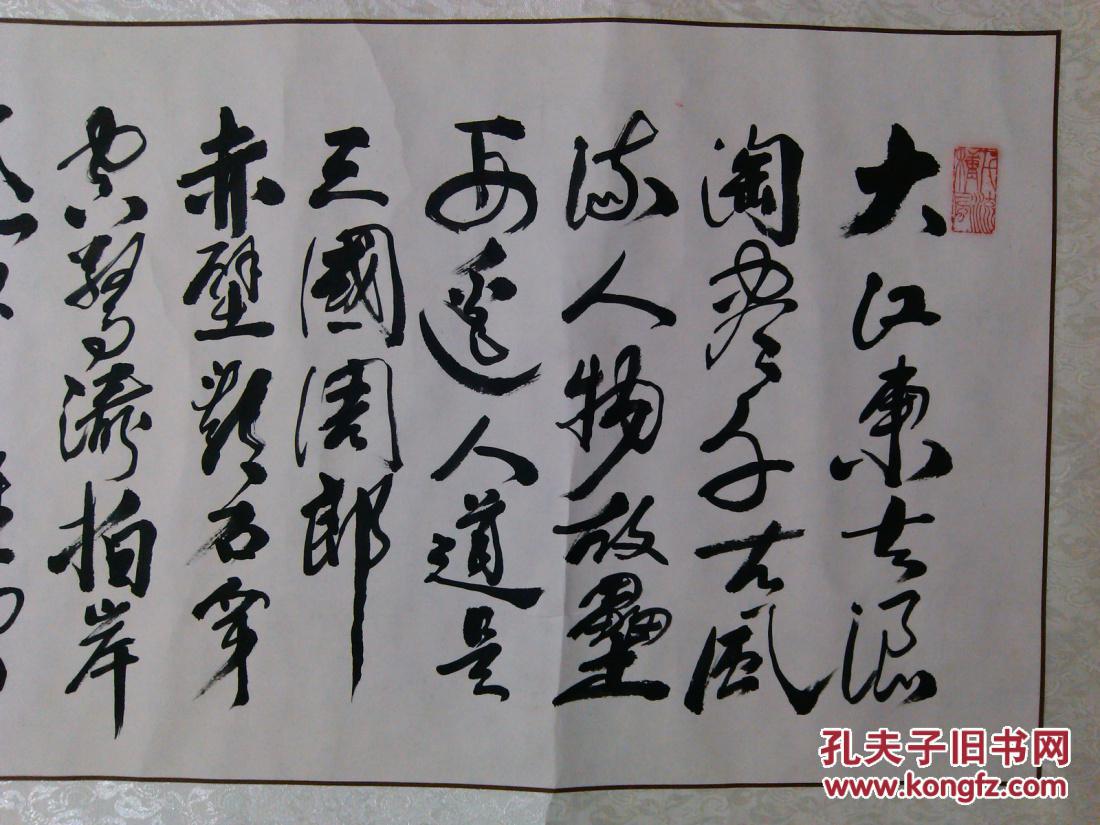 大江東去浪
淘盡千古風
流人物故壘
西邊人道是
三國周郎
赤壁亂石穿
空驚濤拍岸
孔夫子旧书网
www.kongfz.com